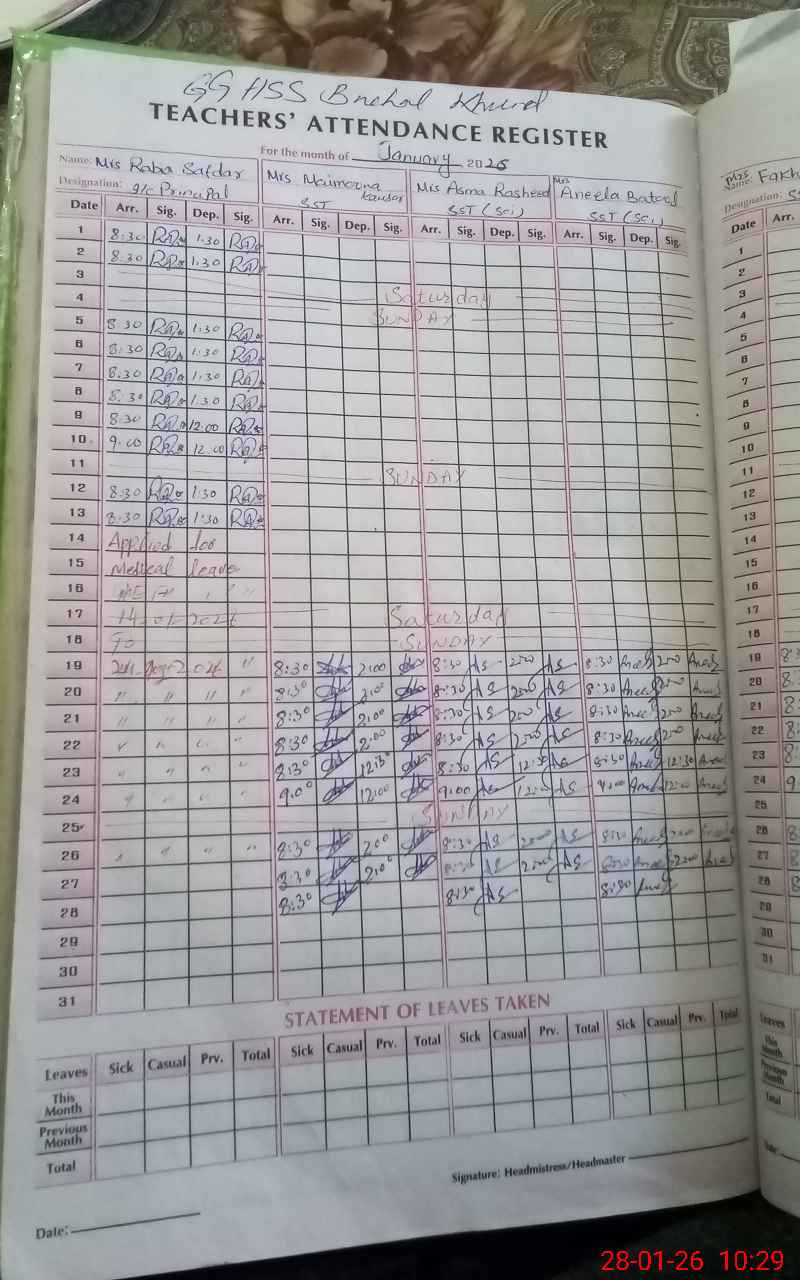 GGHSS Bnehal Khurd
TEACHERS' ATTENDANCE REGISTER
For the month of January 2026
Name: Mrs Rabia Safdar Mrs Maimoona Kausar Mrs Asma Rasheed Mrs Aneela Batool Mrs Name:
Designation: I/c Principal SST SST (Sci) SST (Sci) Designation:
Date Arr. Sig. Dep. Sig. Arr. Sig. Dep. Sig. Arr. Sig. Dep. Sig. Arr. Sig. Dep. Sig. Date Arr.
1 8:30 1:30 1
2 8:30 1:30 2
3 3
4 Saturday 4
SUNDAY
5 8:30 1:30 5
6 8:30 1:30 6
7 8:30 1:30 7
8 8:30 1:30 8
9 8:30 12:00 9
10 9:00 12:00 10
11 SUNDAY 11
12 8:30 1:30 12
13 8:30 1:30 13
14 Applied for 14
15 Medical leave 15
16 16
17 14-01-2026 Saturday 17
18 To SUNDAY 18
19 2026 " 8:30 2:00 8:30 AS 200 AS 8:30 Aneela 200 Aneela 19
20 " " " " 8:30 2:00 8:30 AS 200 AS 8:30 Aneela 200 Aneela 20
21 " " " " 8:30 2:00 8:30 AS 200 AS 8:30 Aneela 200 Aneela 21
22 " " " " 8:30 2:00 8:30 AS 200 AS 8:30 Aneela 200 Aneela 22
23 " " " " 8:30 12:30 8:30 AS 12:30 AS 8:30 Aneela 12:30 Aneela 23
24 " " " " 9:00 12:00 9:00 AS 12:00 AS 9:00 Aneela 12:00 Aneela 24
25 SUNDAY 25
26 " " " " 8:30 2:00 8:30 AS 200 AS 8:30 Aneela 200 26
27 8:30 2:00 8:30 AS 200 AS 8:30 Aneela 200 Aneela 27
28 8:30 8:30 AS 8:30 Aneela 28
29 29
30 30
31 31
STATEMENT OF LEAVES TAKEN
Leaves Sick Casual Prv. Total Sick Casual Prv. Total Sick Casual Prv. Total Sick Casual Prv. Total Leaves
This Month This Month
Previous Month Previous Month
Total Total
Signature: Headmistress/Headmaster
Date: Date:
28-01-26 10:29